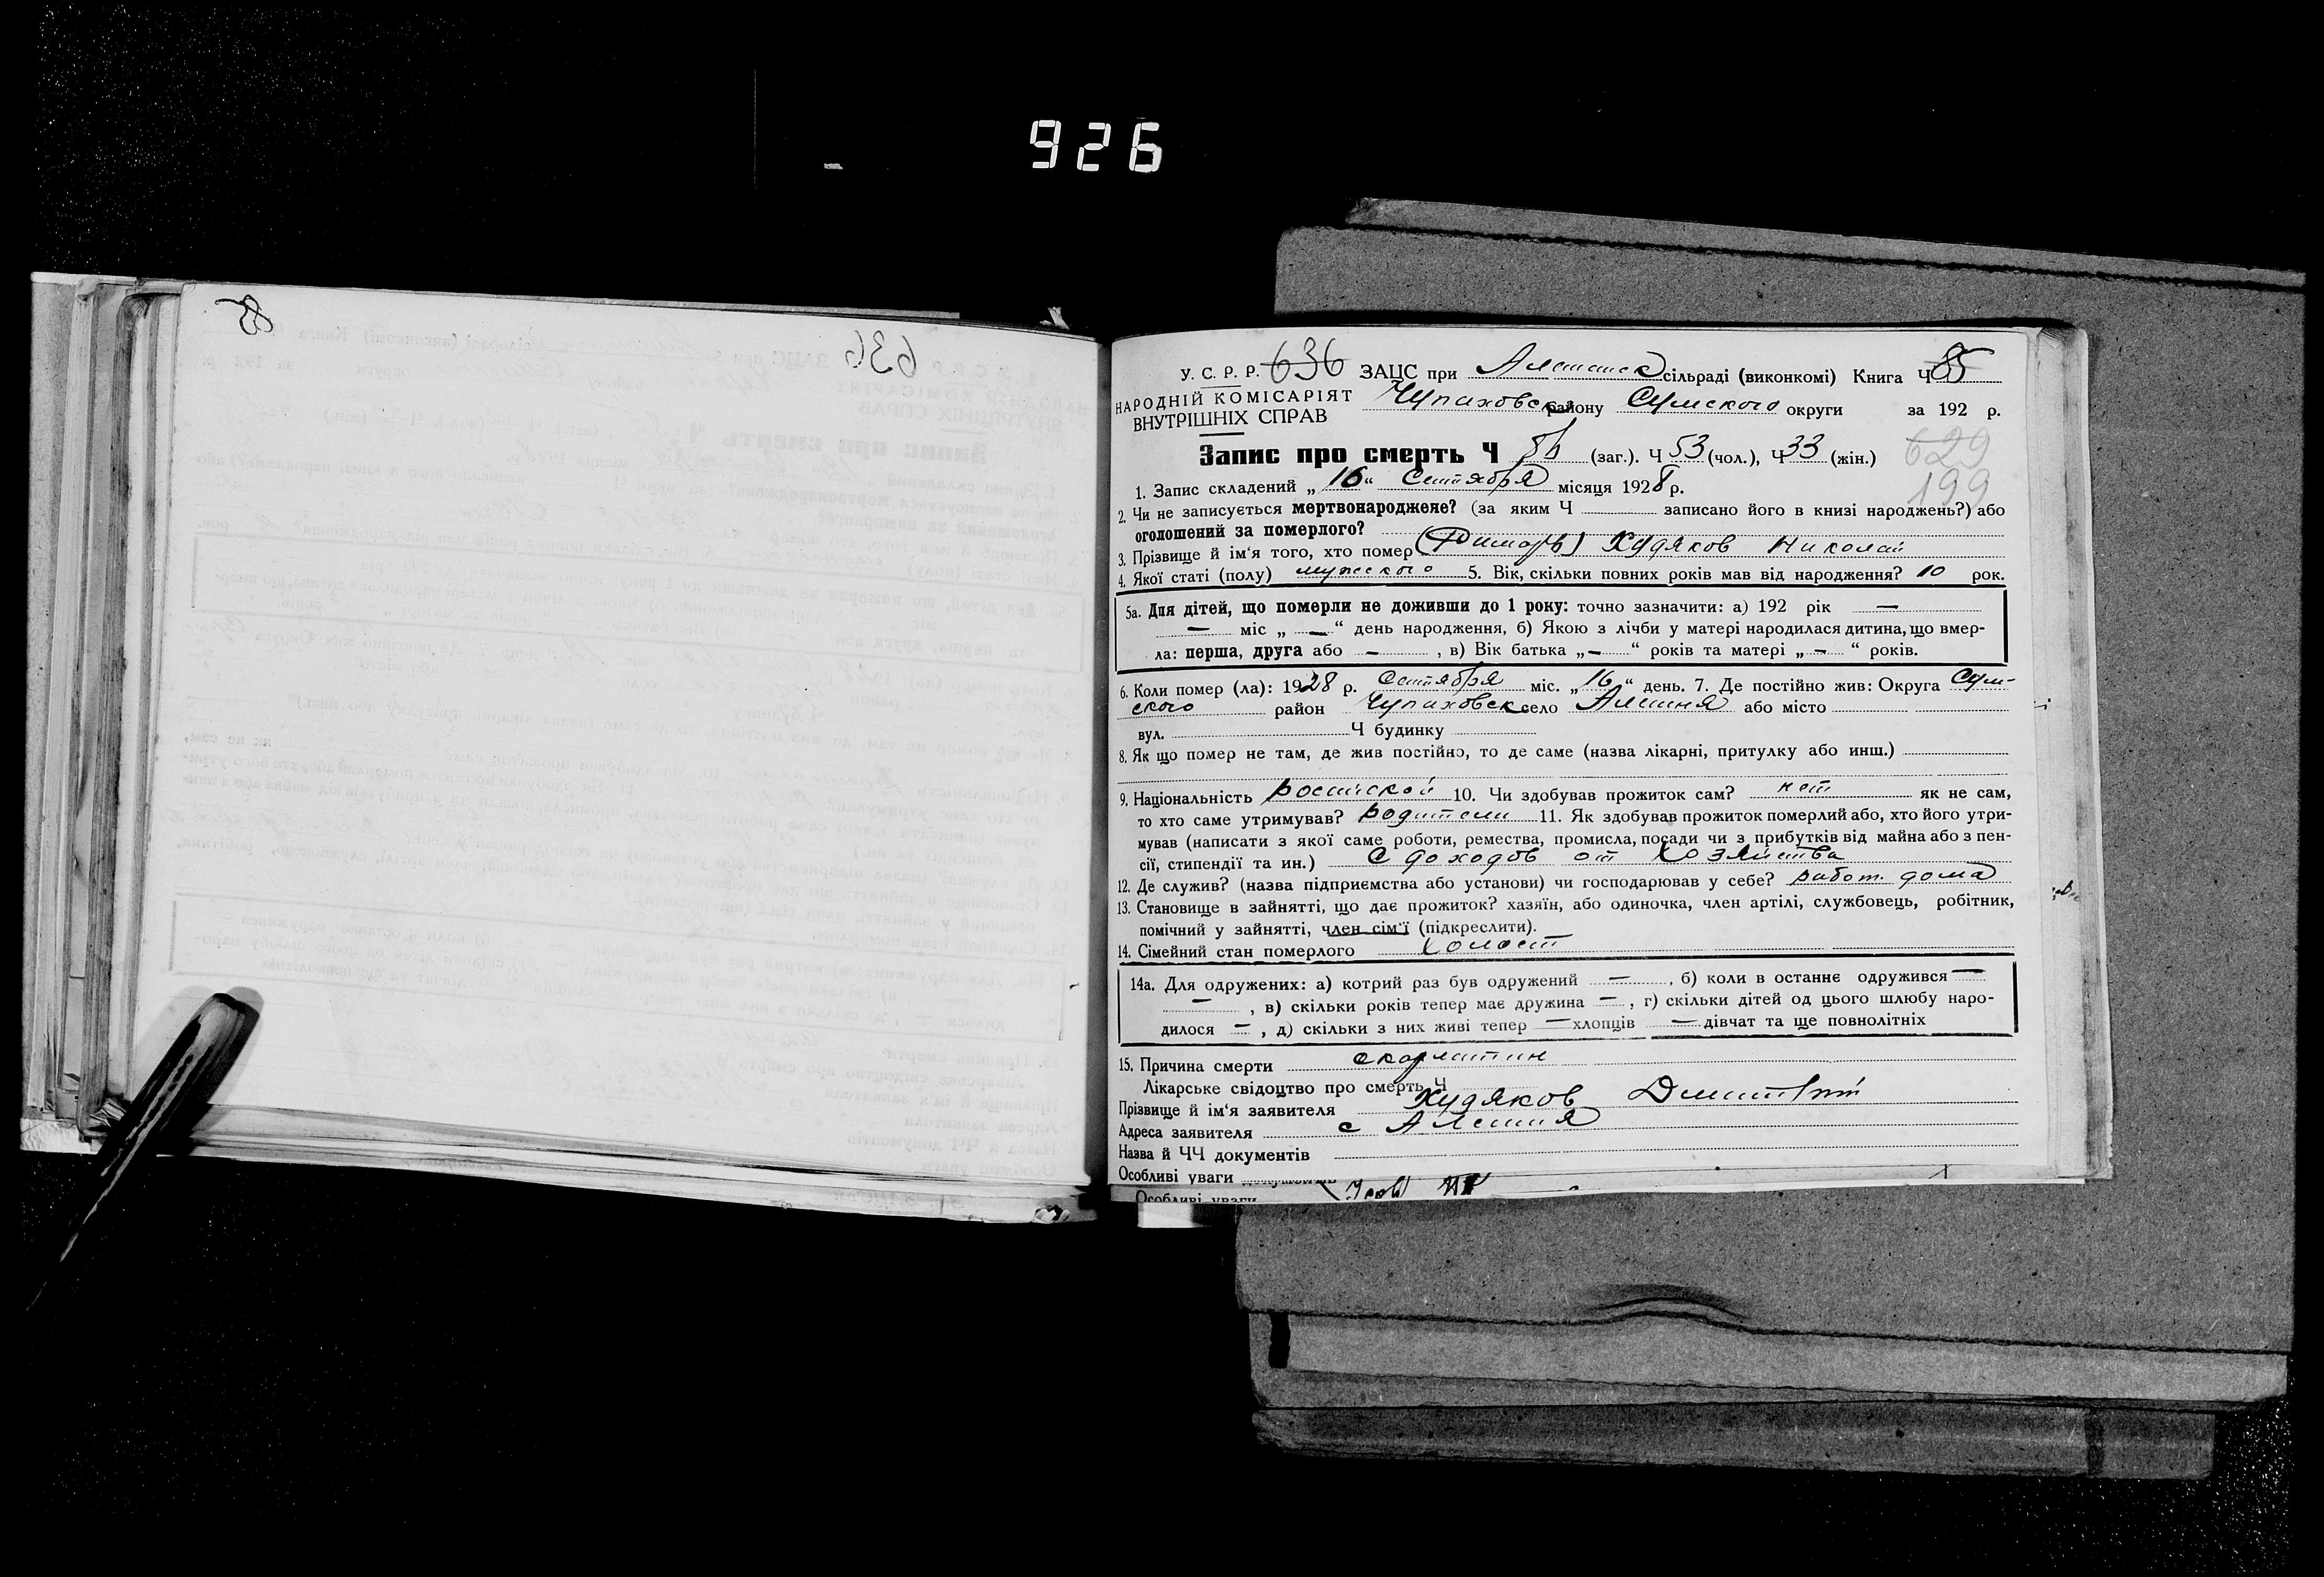 926
85
636
У. С. Р. Р. 636 ЗАЦС при Алешанск сільраді (виконкомі) Книга Ч 85
НАРОДНІЙ КОМІСАРІЯТ Чупаховск району Сумского округи за 192 р.
ВНУТРІШНІХ СПРАВ
629
Запис про смерть Ч 86 (заг.). Ч 53 (чол.), Ч 33 (жін.)
199
1. Запис складений „ 16 “ Сентября місяця 1928 р.
2. Чи не записується мертвонароджене? (за яким Ч записано його в книзі народжень?) або
оголошений за померлого?
3. Прізвище й ім'я того, хто помер Худяков Николай
4. Якої статі (полу) мужского 5. Вік, скільки повних років мав від народження? 10 рок.
5а. Для дітей, що померли не доживши до 1 року: точно зазначити: а) 192 рік —
— міс „ — “ день народження, б) Якою з лічби у матері народилася дитина, що вмер-
ла: перша, друга або — , в) Вік батька „ — “ років та матері „ — “ років.
6. Коли помер (ла): 1928 р. Сентября міс. „ 16 “ день. 7. Де постійно жив: Округа Сум-
ского район Чупаховск село Алешня або місто
вул. Ч будинку
8. Як що помер не там, де жив постійно, то де саме (назва лікарні, притулку або инш.)
9. Національність росийской 10. Чи здобував прожиток сам? нет як не сам,
то хто саме утримував? родители 11. Як здобував прожиток померлий або, хто його утри-
мував (написати з якої саме роботи, ремества, промисла, посади чи з прибутків від майна або з пен-
сії, стипендії та ин.) С доходов от хозяйства
12. Де служив? (назва підприємства або установи) чи господарював у себе? работ. дома
13. Становище в зайнятті, що дає прожиток? хазяїн, або одиночка, член артілі, службовець, робітник,
помічний у зайнятті, член сім'ї (підкреслити).
14. Сімейний стан померлого холост
14а. Для одружених: а) котрий раз був одружений — , б) коли в останнє одружився —
— , в) скільки років тепер має дружина — , г) скільки дітей од цього шлюбу наро-
дилося — , д) скільки з них живі тепер — хлопців — дівчат та ще повнолітніх
15. Причина смерти скарлатин
Лікарське свідоцтво про смерть Ч
Прізвище й ім'я заявителя Худяков Дмитрий
Адреса заявителя с Алешня
Назва й ЧЧ документів
Особливі уваги
Особливі уваги